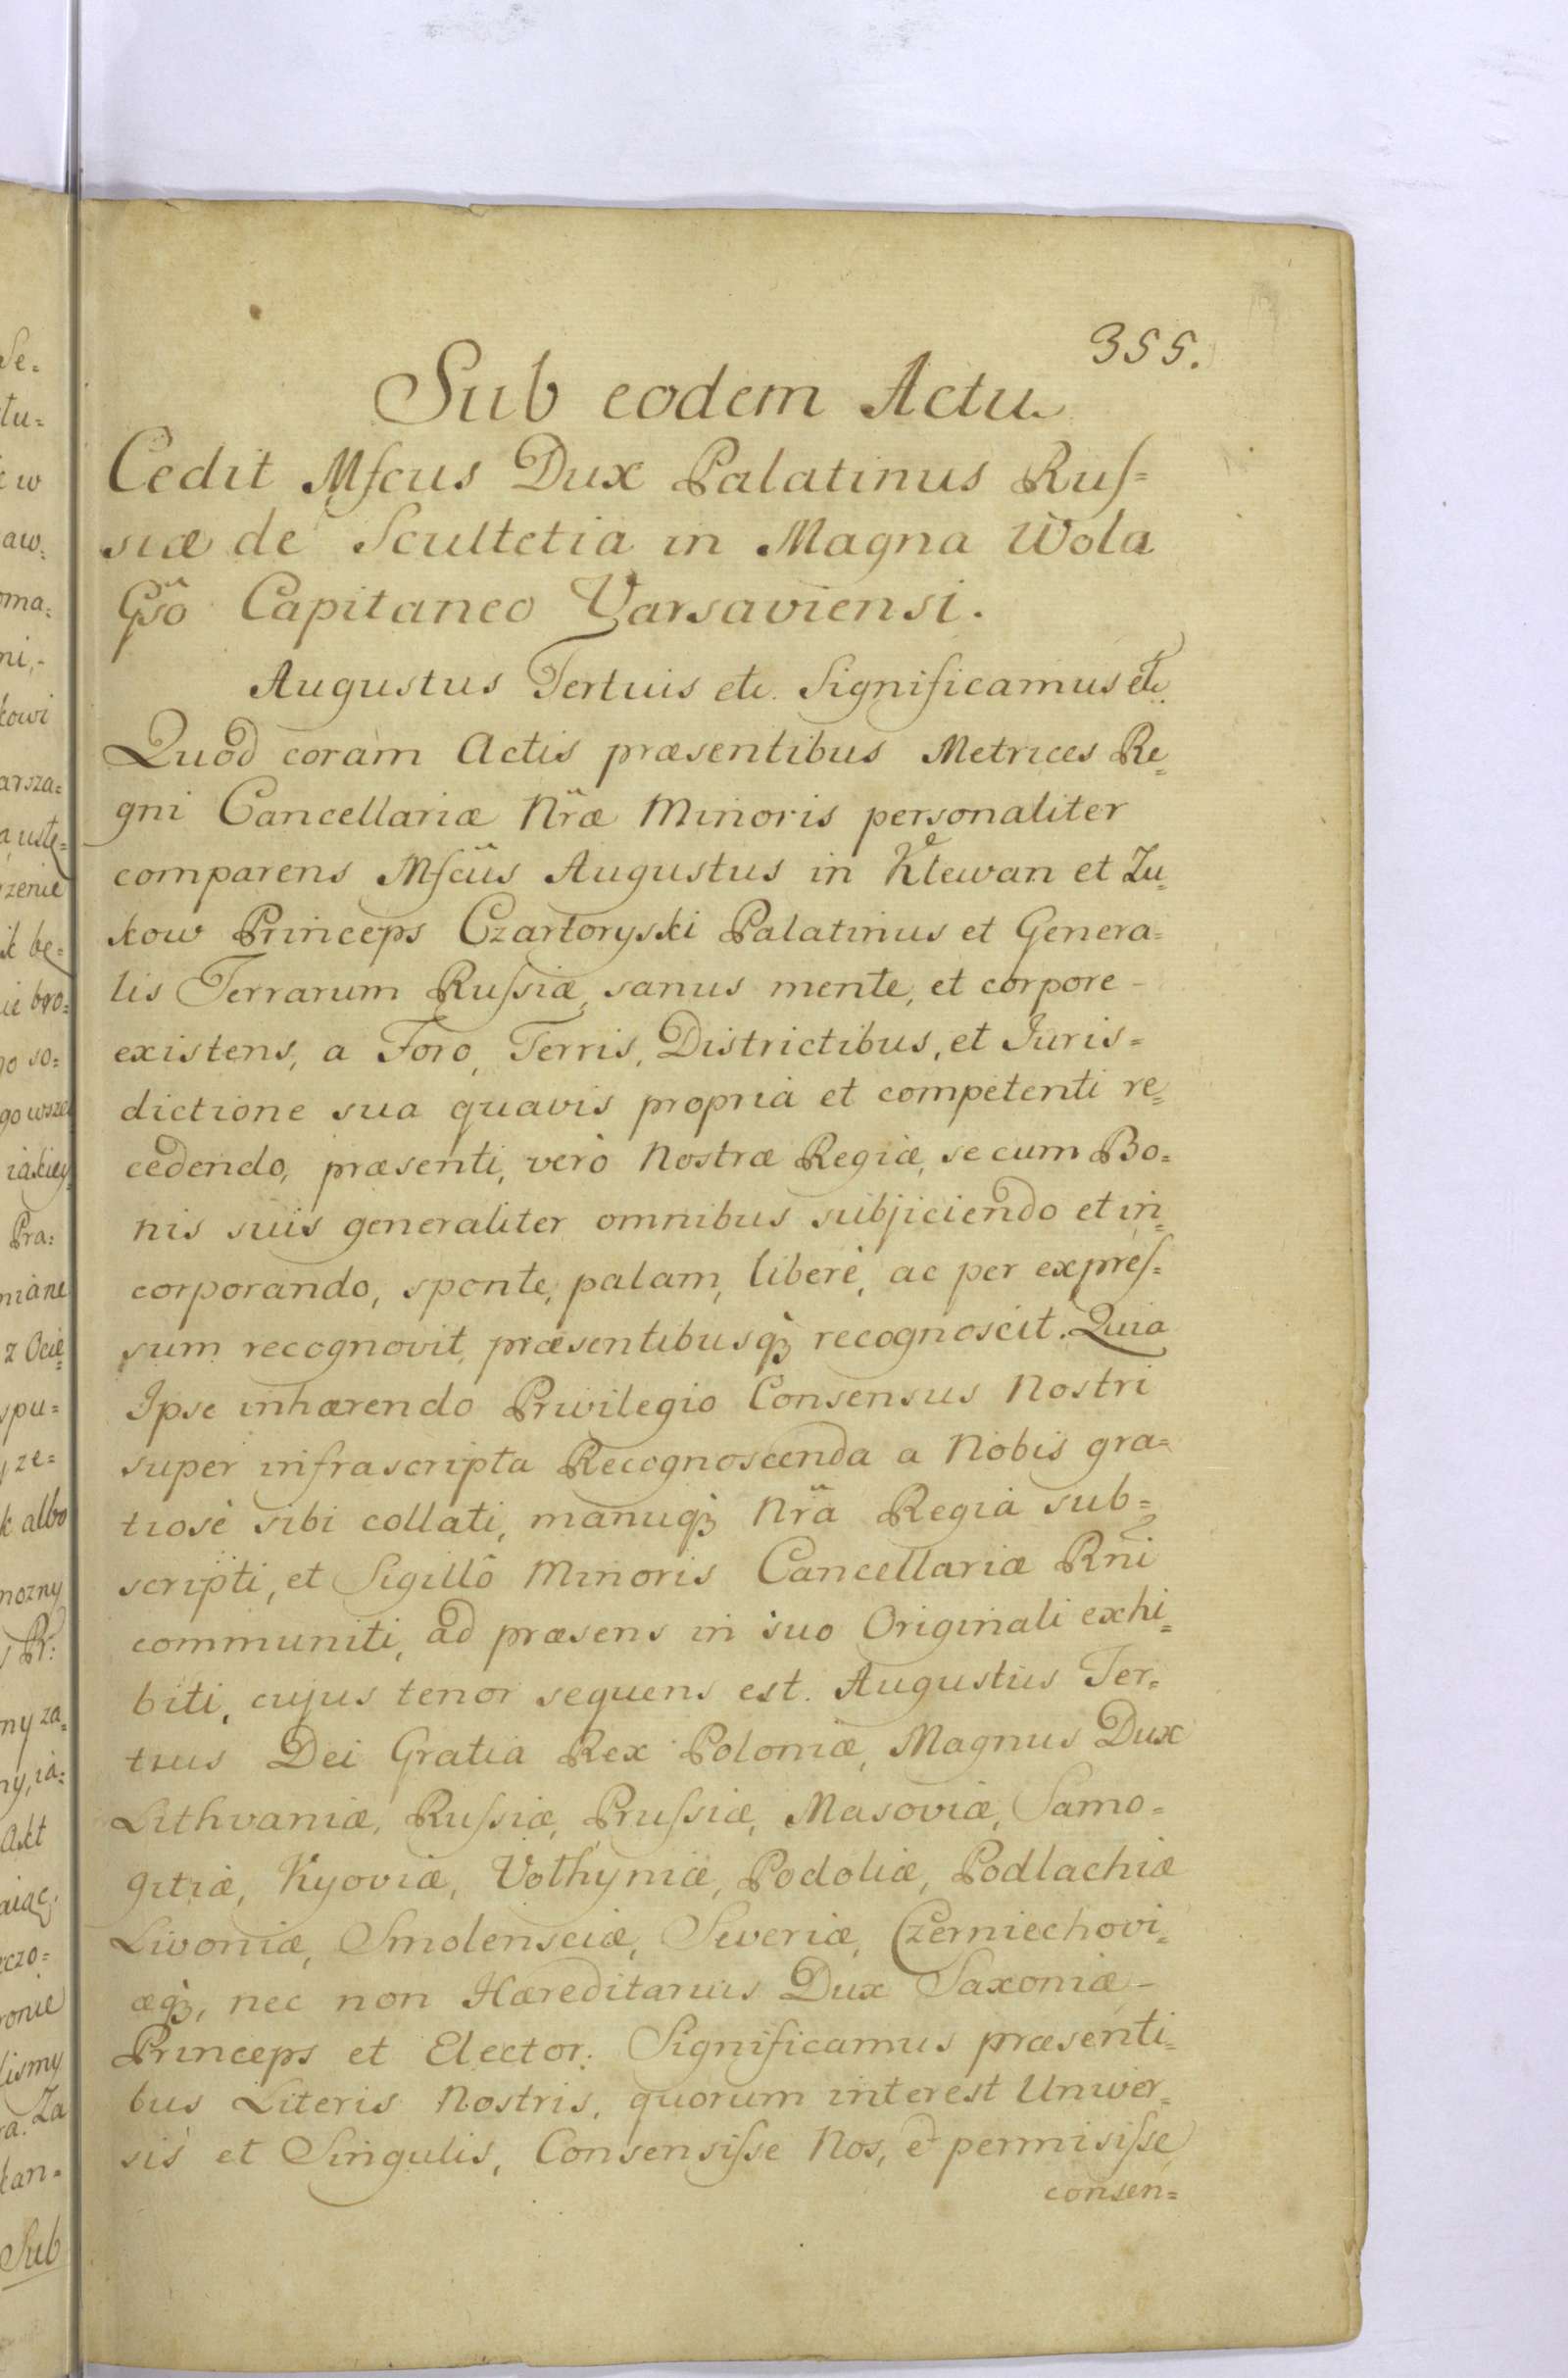 355.
Sub eodem Actu
Cedit Mfcus Dux Palatinus Rus=
siæ de Scultetia in Magna Wola
Gso Capitaneo Varsaviensi.
Augustus Tertuis etc. Significamus etc.
Quod coram Actis præsentibus Metrices Re=
gni Cancellariæ Nræ Minoris personaliter
comparens Mfcus Augustus in Klewan et Zu=
kow Princeps Czartoryski Palatinus et Genera=
lis Terrarum Russiæ, sanus mente, et corpore -
existens, a Foro, Terris, Districtibus, et Juris=
dictione sua quavis propria et competenti re=
cedendo, præsenti, verò Nostræ Regiæ, se cum Bo=
nis suis generaliter omnibus subjiciendo et in=
corporando, sponte, palam, liberè, ac per expres=
sum recognovit, præsentibusq; recognoscit. Quia
Ipse inhærendo Privilegio Consensus Nostri
super infrascripta Recognoscenda a Nobis gra=
tiosè sibi collati, manuq; Nrã Regia sub=
scripti, et Sigillô Minoris Cancellariæ Rni
communiti, ad præsens in suo Originali exhi=
biti, cujus tenor sequens est. Augustus Ter=
tius Dei Gratia Rex Poloniæ, Magnus Dux
Lithvaniæ, Russiæ, Prussiæ, Masoviæ, Samo=
gitiæ, Kyoviæ, Volhyniæ, Podoliæ, Podlachiæ
Livoniæ, Smolensciæ, Severiæ, Czerniechovi=
æq;, nec non Hæreditarius Dux Saxoniæ -
Princeps et Elector. Significamus præsenti=
bus Literis Nostris, quorum interest Univer=
sis et Singulis, Consensisse Nos, et permisisse
consen=
Se=
tu=
aw=
oma=
ni,-
kowi
arsza=
auste=
zenie
ik be=
ie bro=
go so=
go wsze
iakiey
Pra=
niane
z Ocie=
spu=
ze=
k albo
mozny
R:
ny za=
ny, ia=
Akt
aiąc,
czo=
ronie
lismy
ra. Za
kan=
Sub